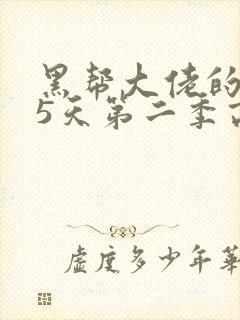 黑帮大佬的
5天第二季
虚度多少年华